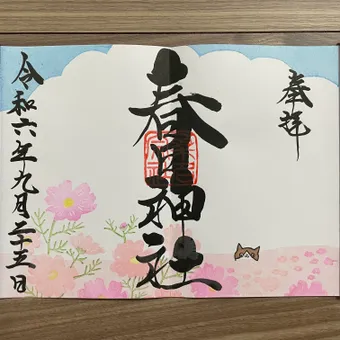 奉拝
春日神社
令和六年九月二十三日